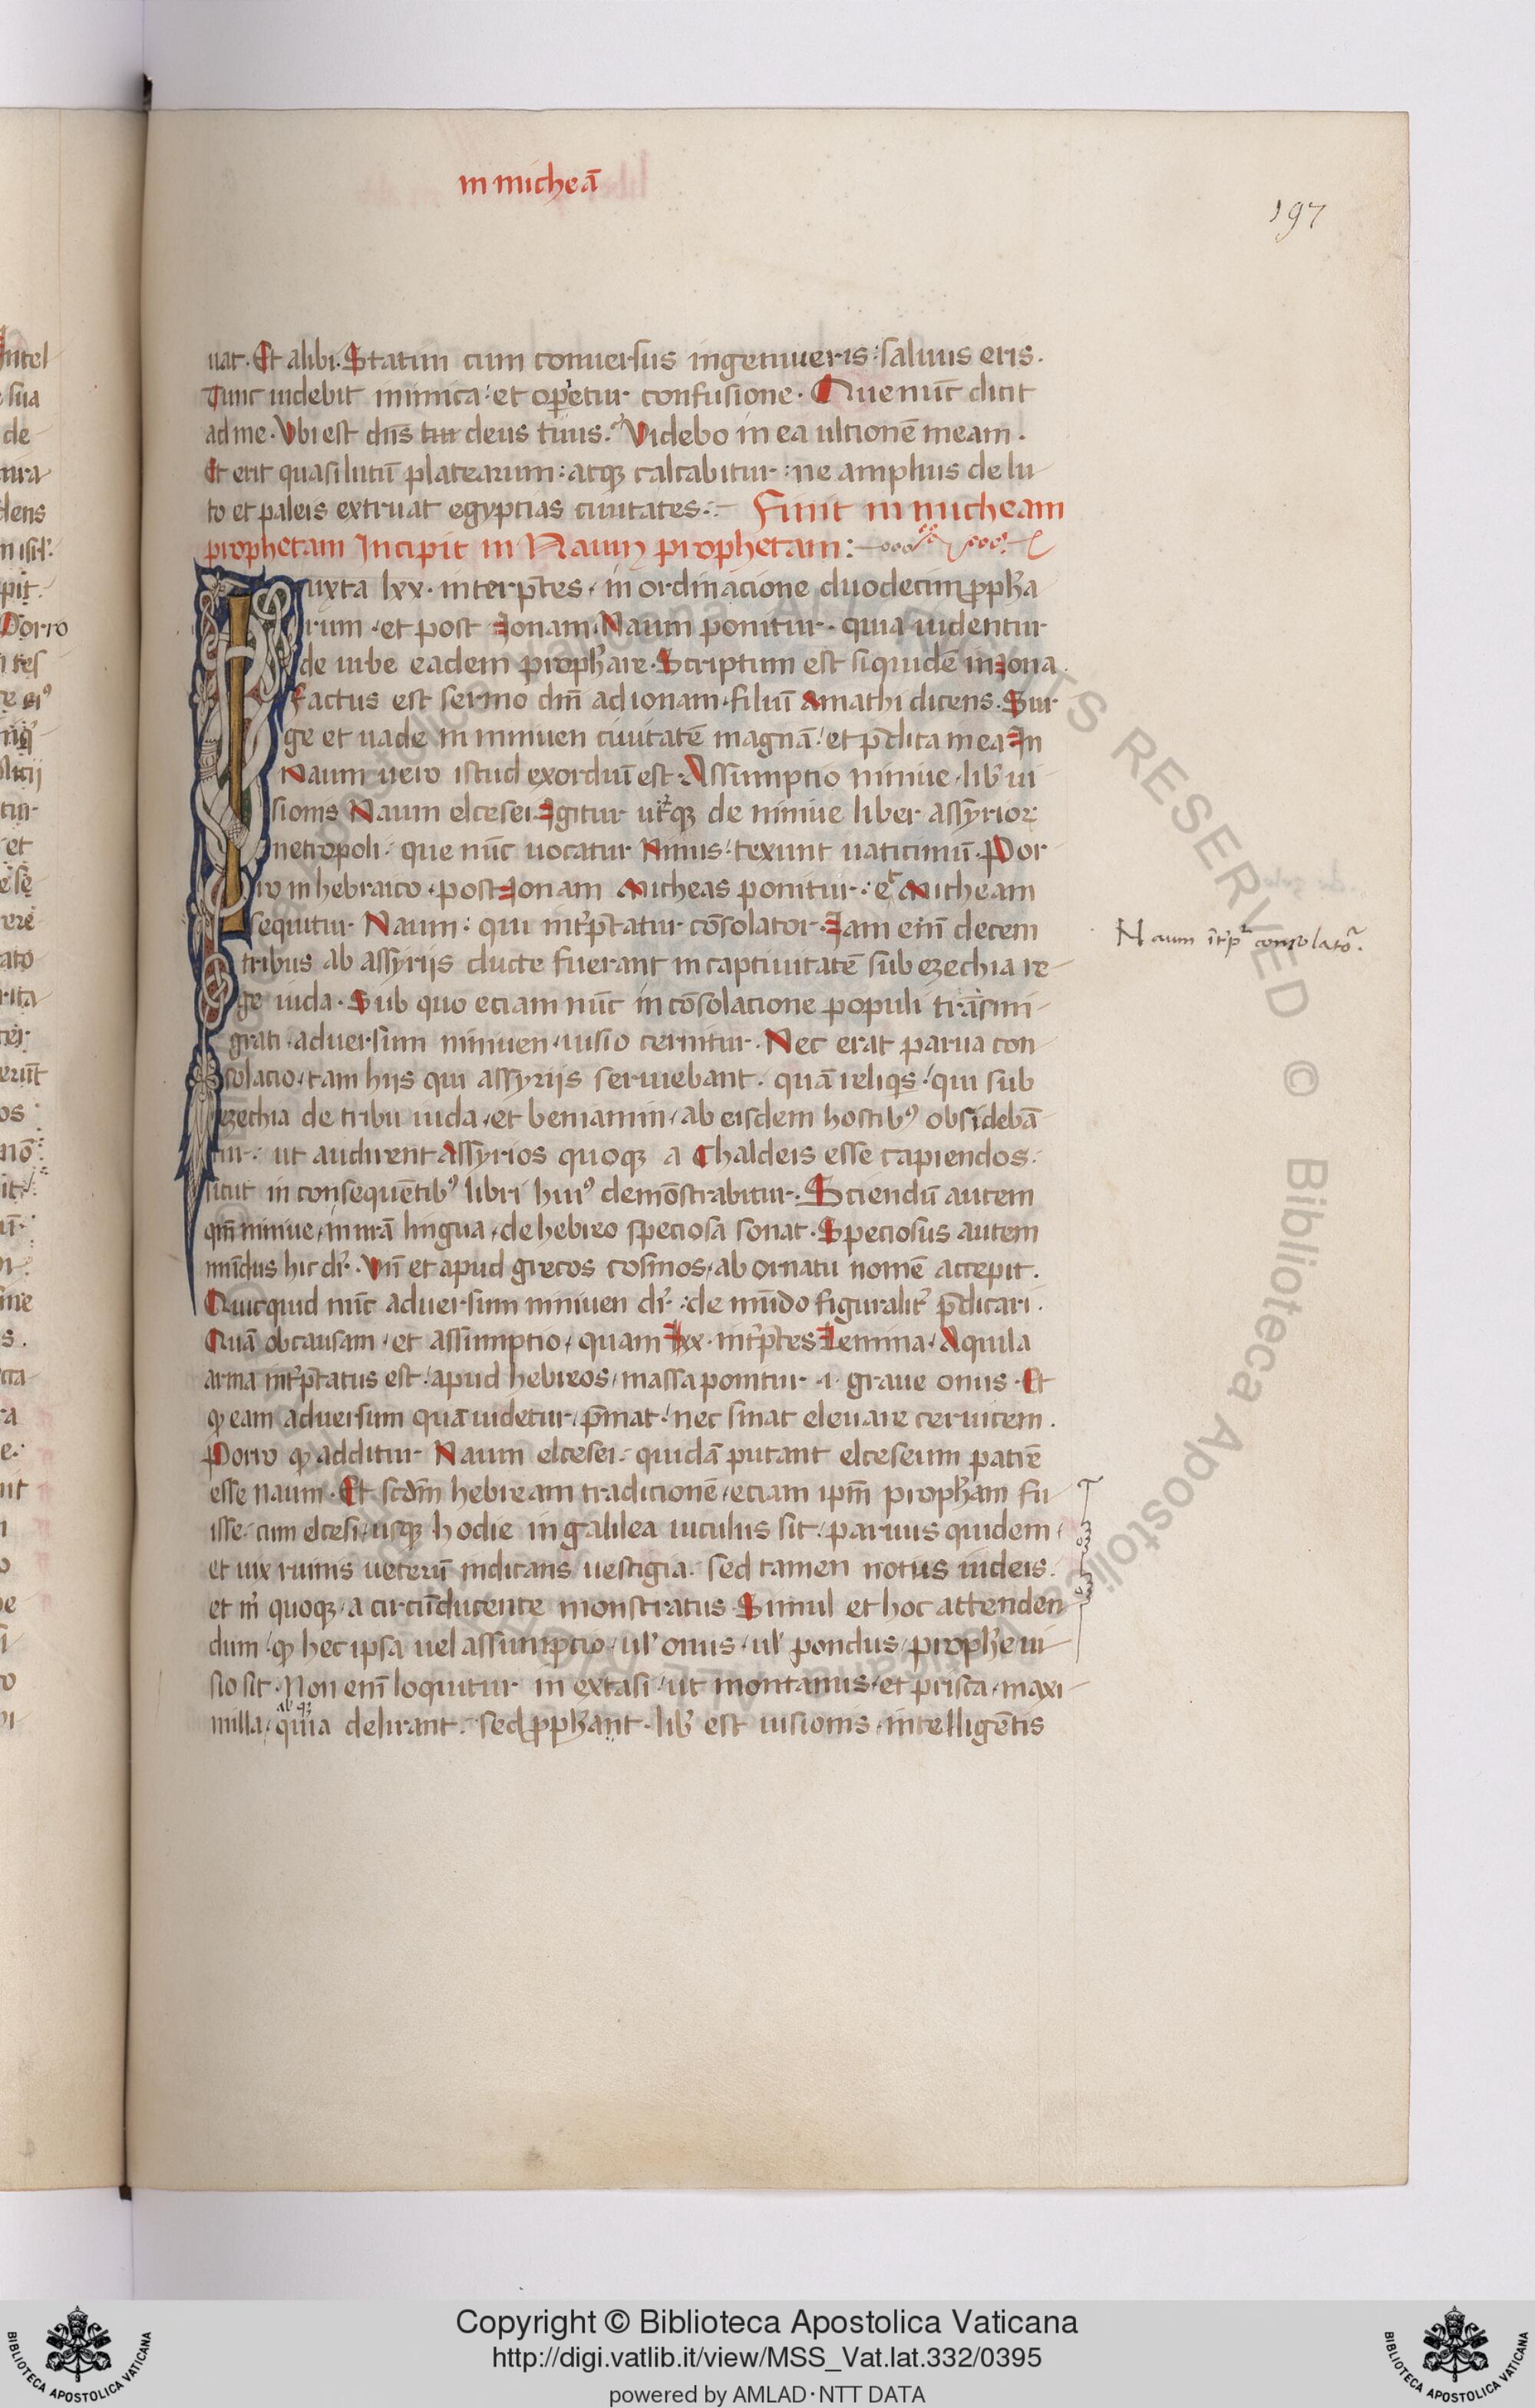 in micheā
197
uat. Et alibi. Statim cum conuersus ingemueris: saluus eris.
Tunc uidebit inimica: et operietur confusione. Que nūc dicit
ad me. Vbi est dn̄s tuus deus tuus? Videbo in ea ultionē meam.
Et erit quasi lutū platearum: atqꝫ calcabitur: ne amplius de lu-
to et paleis extruat egyptias ciuitates:- Finit in micheam
prophetam Incipit in Naum prophetam:-
Iuxta lxx. interp̄tes, in ordinacione duodecim ꝓph̄a
rum, et post Jonam, Naum ponitur. quia uidentur
de urbe eadem proph̄are. Scriptum est siquidē in Jona.
Factus est sermo dn̄i ad ionam, filiū amathi dicens. Sur-
ge et uade in niniuen ciuitatē magnā: et p̄dica in ea. In
Naum uero istud exordiū est. Assumptio niniue, lib̄ ui-
sionis Naum elcesei. Igitur ut̄qꝫ de niniue liber assyrioꝝ
metropoli, que nūc uocatur Ninus: texunt uaticiniū. Por
ro in hebraico, post Jonam Micheas ponitur: et Micheam
sequitur Naum: qui int̄p̄tatur cōsolator. Jam eni̅ decem
Naum īt̄p̄r consolator.
tribus ab assyrijs ducte fuerant in captiuitatē sub ezechia re-
ge iuda. Sub quo eciam nūc in cōsolacione populi trāsmi-
grati, aduersum niniuen, uisio cernitur. Nec erat parua con
solacio, tam hijs qui assyrijs seruiebant. quā reliqis: qui sub
ezechia de tribu iuda, et beniamin, ab eisdem hostibꝰ obsidebā
tur: ut audirent Assyrios quoqꝫ a Chaldeis esse capiendos:
sicut in consequētibꝰ libri huiꝰ demōstrabitur. Sciendū autem
qm̄ niniue, in nrā lingua, de hebreo speciosa sonat. Speciosus autem
mūdus hic dr̄. Vn̄ et apud grecos cosmos, ab ornatu nomē accepit.
Quicquid nūc aduersum niniuen dr̄: de mūdo figuralit̄ p̄dicari.
Quā ob causam, et assumptio, quam lxx. int̄p̄tes Lemma, Aquila
arma int̄p̄tatus est: apud hebreos, massa ponitur .i. graue onus. Et
ꝙ eam aduersum quā uidetur, p̄mat: nec sinat eleuare ceruicem.
Porro ꝙ additur Naum elcesei: quidā putant elceseum patrē
esse naum. Et scd̄m hebream tradicionē, eciam ipm̄ proph̄am fu
isse: cum elcesi, usqꝫ hodie in galilea uiculus sit: paruus quidem,
et uix ruinis ueterū indicans uestigia. sed tamen notus iudeis.
et m̄ quoqꝫ, a circūducente monstratus. Simul et hoc attenden
dum: ꝙ hec ipsa uel assumptio, ul̄ onus, ul̄ pondus, proph̄e ui-
sio sit. Non eni̅ loquitur in extasi, ut montanus, et prisca, maxi-
milla, delirant: sed ꝓph̄ant. lib̄ est uisionis, intelligētis